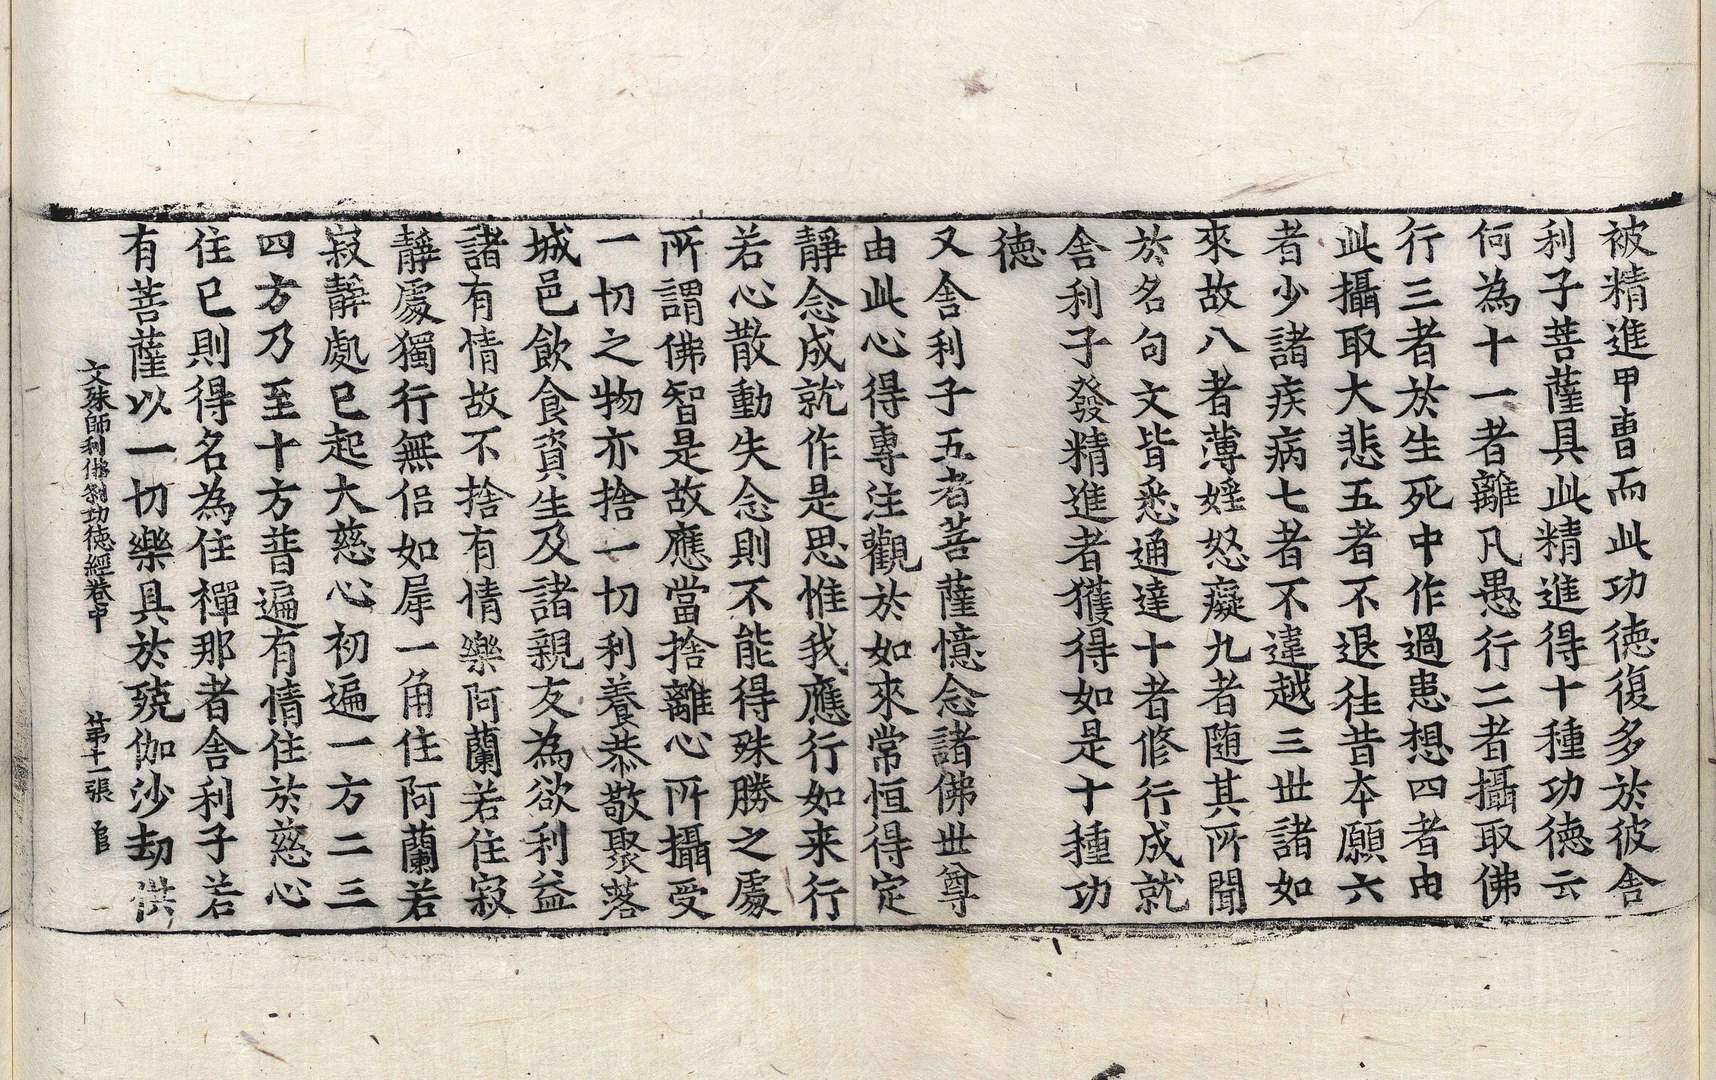 被精進甲冑而此功德復多於彼舍
利子菩薩具此精進得十種功德云
何為十一者離凡愚行二者攝取佛
行三者於生死中作過患想四者由
此攝取大悲五者不退往昔本願六
者少諸疾病七者不違越三世諸如
來故八者薄婬怒癡九者随其所聞
於名句文皆悉通達十者修行成就
舍利子發精進者獲得如是十種功
德
又舍利子五者菩薩憶念諸佛世尊
由此心得專注觀於如來常恒得定
靜念成就作是思惟我應行如来行
若心散動失念則不能得殊勝之處
所謂佛智是故應當捨離心所攝受
一切之物亦捨一切利養恭敬聚落
城邑飲食資生及諸親友為欲利益
諸有情故不捨有情樂阿蘭若住寂
靜處獨行無侣如犀一角住阿蘭若
寂靜處已起大慈心初遍一方二三
四方乃至十方普遍有情住於慈心
住已則得名為住禪那者舍利子若
有菩薩以一切樂具於殑伽沙劫供
文殊師利佛刹功德經卷中 第十一張